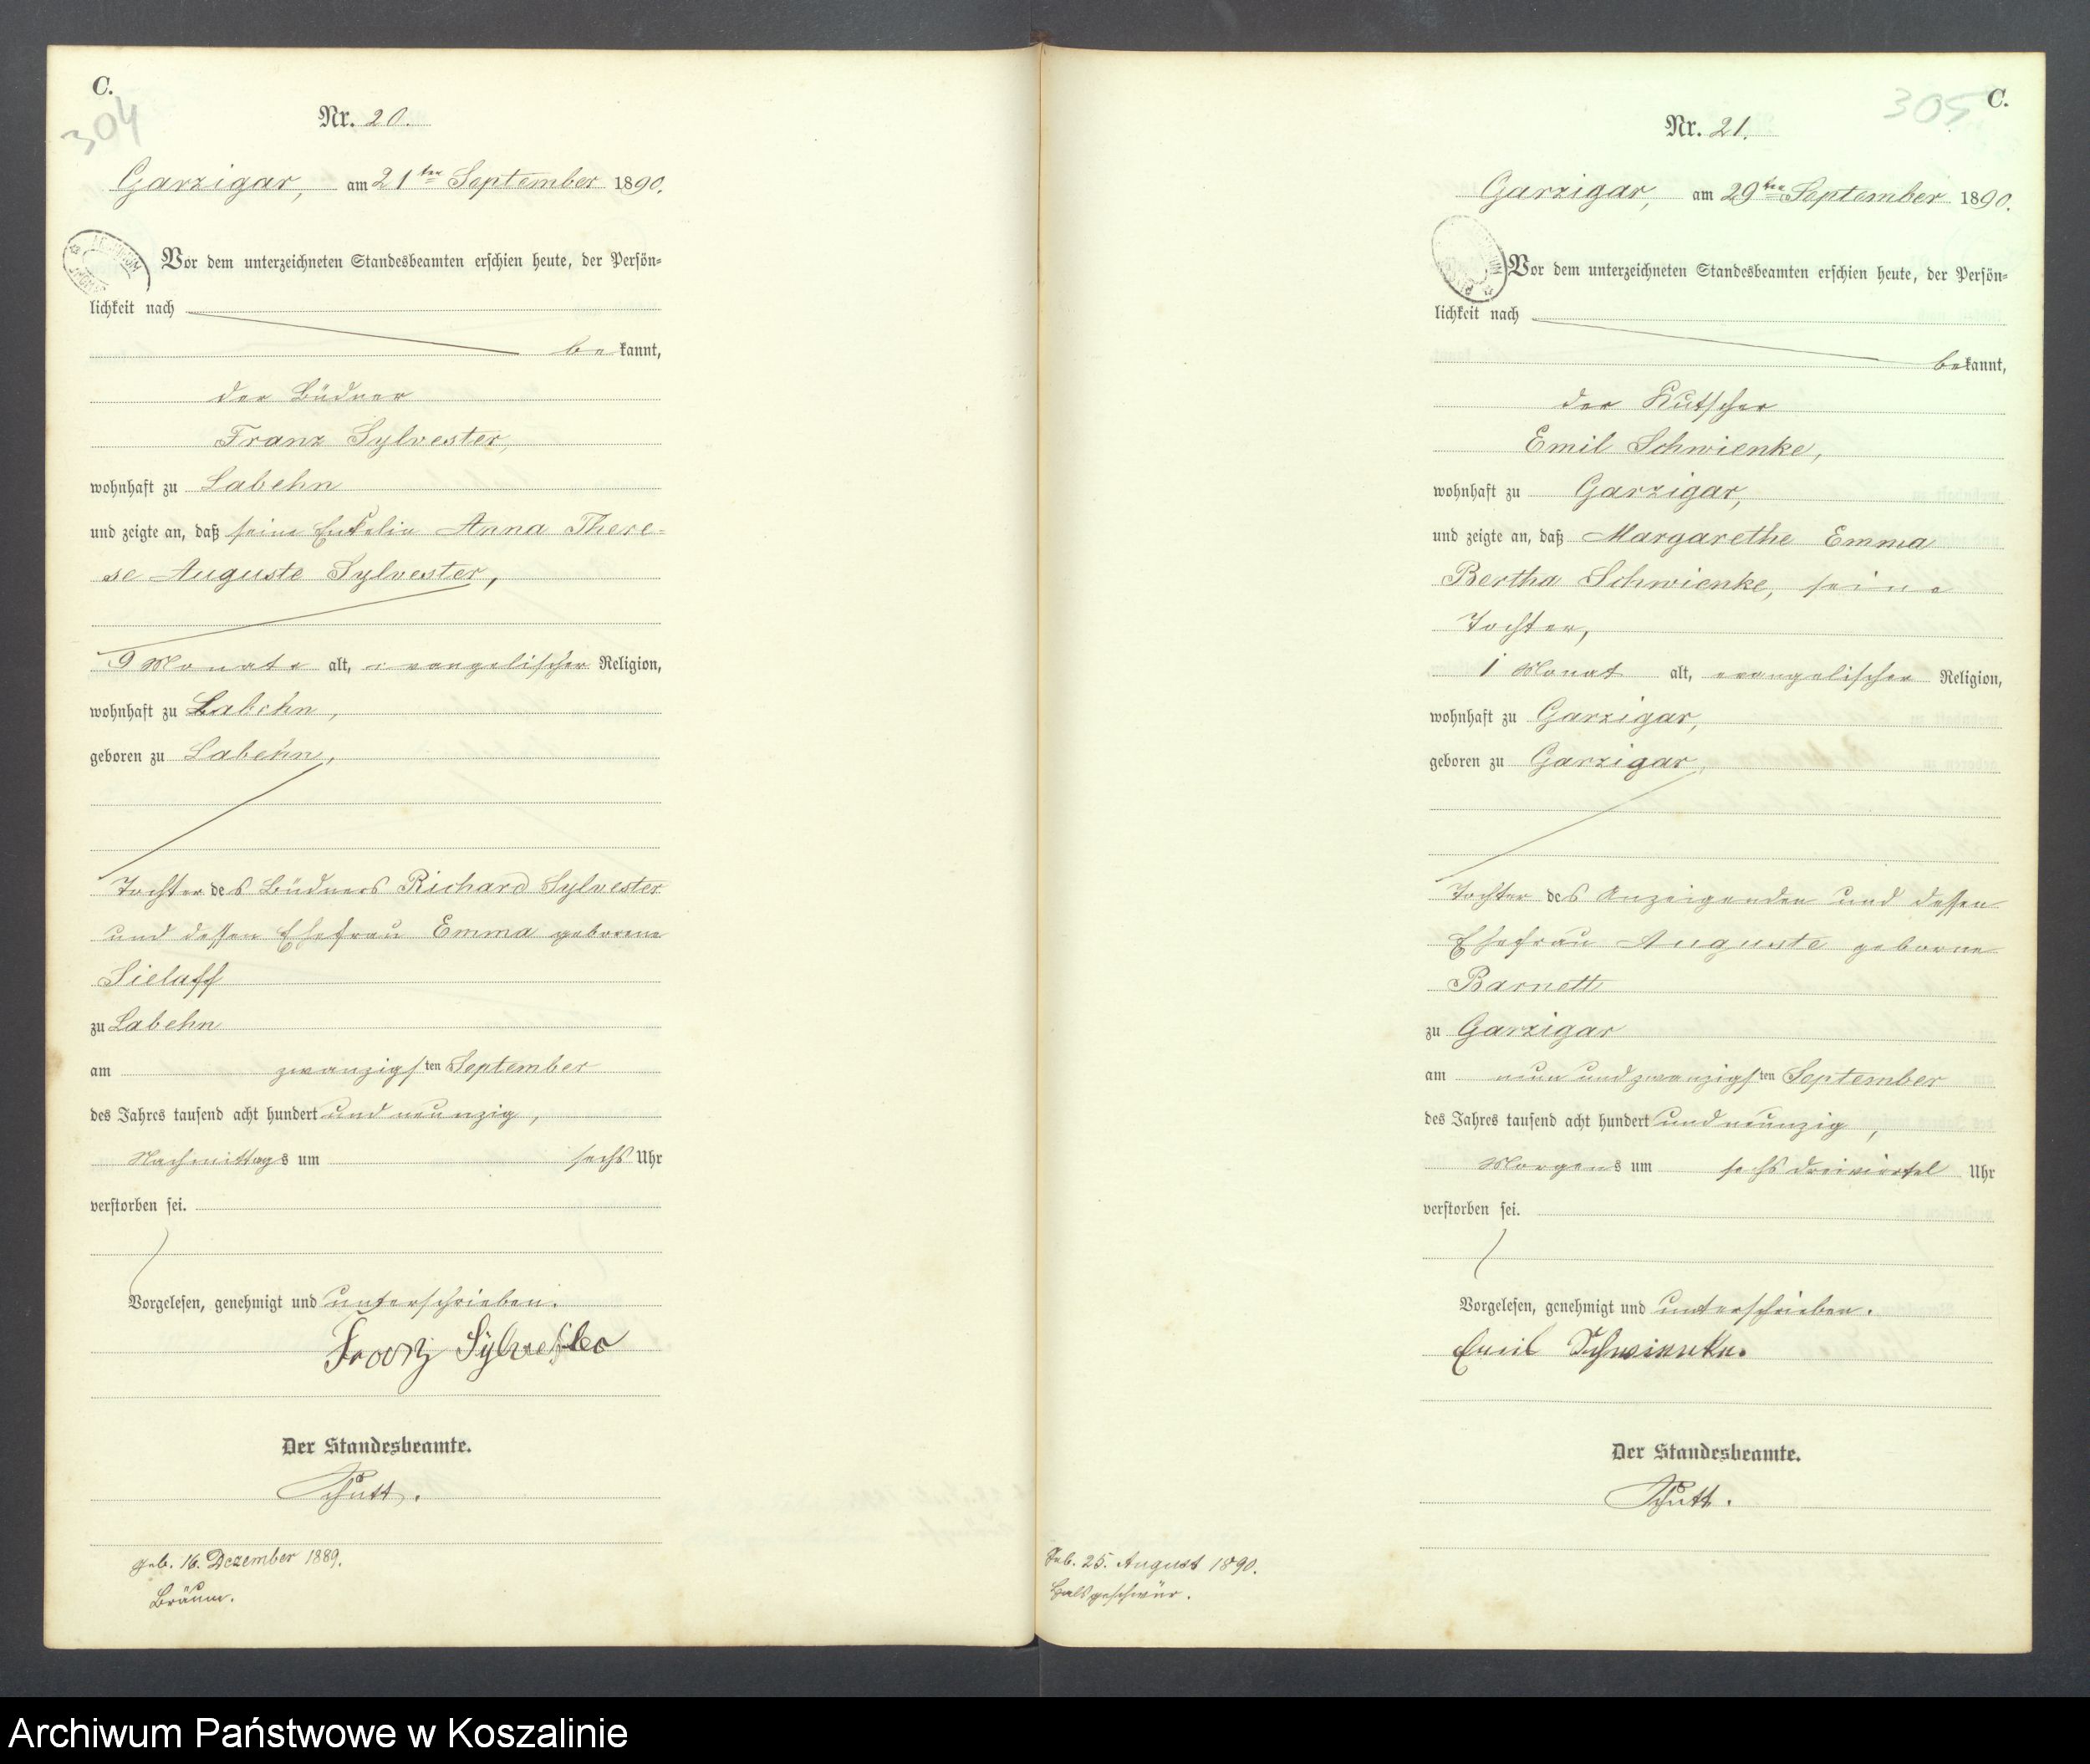 C.
304
Nr. 20.
Garzigar, am 21ten September 1890.
Vor dem unterzeichneten Standesbeamten erschien heute, der Persön-
lichkeit nach
bekannt,
der Büdner
Franz Sylvester,
wohnhaft zu Labehn
und zeigte an, daß seine Enkelin Anna There-
se Auguste Sylvester,
9 Monate alt, evangelischer Religion,
wohnhaft zu Labehn,
geboren zu Labehn,
Tochter des Büdners Richard Sylvester
und dessen Ehefrau Emma geborene
Sielaff
zu Labehn
am zwanzigsten September
des Jahres tausend acht hundert und neunzig,
Nachmittags um sechs Uhr
verstorben sei.
Vorgelesen, genehmigt und unterschrieben.
Franz Sylvester
Der Standesbeamte.
Schutt.
geb. 16. Dezember 1889.
Bräune.
305
C.
Nr. 21.
Garzigar, am 29ten September 1890.
Vor dem unterzeichneten Standesbeamten erschien heute, der Persön-
lichkeit nach
bekannt,
der Kutscher
Emil Schwienke,
wohnhaft zu Garzigar,
und zeigte an, daß Margarethe Emma
Bertha Schwienke, seine
Tochter,
1 Monat alt, evangelischer Religion,
wohnhaft zu Garzigar,
geboren zu Garzigar,
Tochter des Anzeigenden und dessen
Ehefrau Auguste geborne
Barnett
zu Garzigar
am neunundzwanzigsten September
des Jahres tausend acht hundert und neunzig,
Morgens um sechs dreiviertel Uhr
verstorben sei.
Vorgelesen, genehmigt und unterschrieben.
Emil Schwienke.
Der Standesbeamte.
Schutt.
Geb. 25. August 1890.
Halsgeschwür.
Archiwum Państwowe w Koszalinie